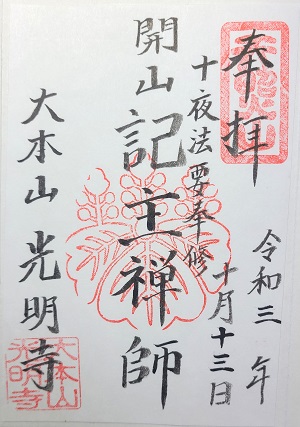 奉拝
令和三年
十月十三日
十夜法要奉修
開山記主禅師
大本山光明寺
大本山
光明寺